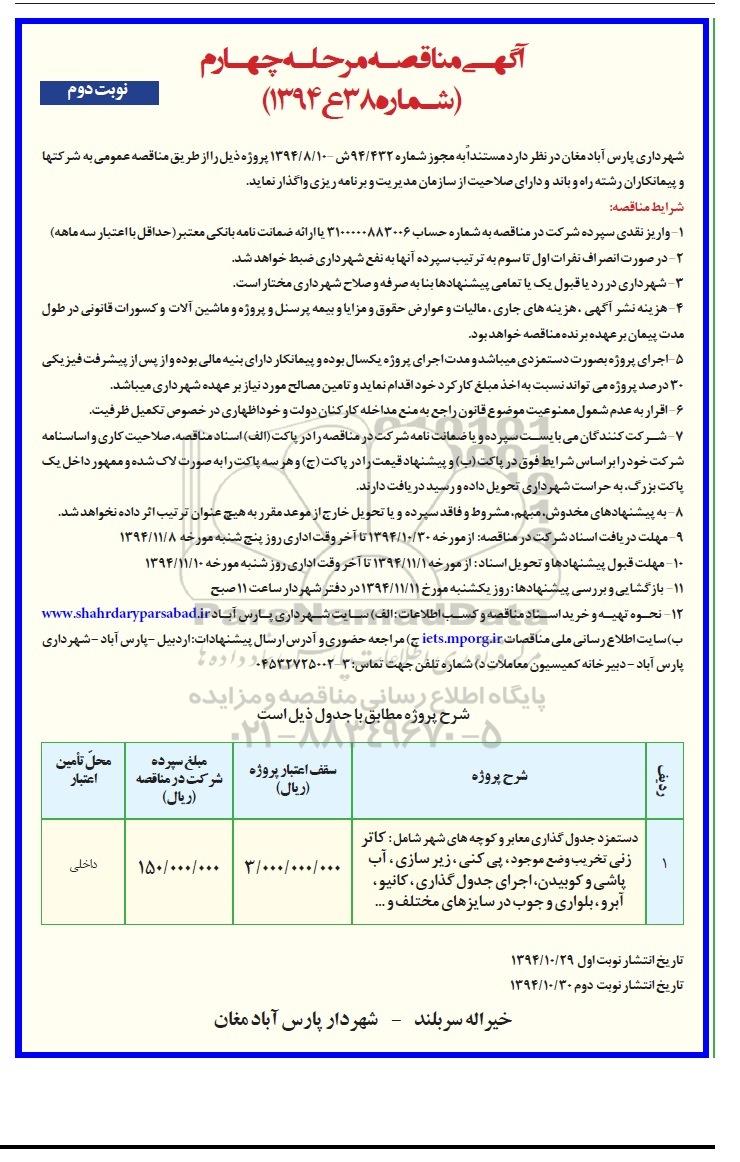 آگهی مناقصه مرحله چهارم
(شماره ۳۸ع۱۳۹۴)
نوبت دوم
شهرداری پارس آباد مغان در نظر دارد مستنداً به مجوز شماره ۹۴/۴۳۲ش -۱۳۹۴/۸/۱۰ پروژه ذیل را از طریق مناقصه عمومی به شرکتها
و پیمانکاران رشته راه و باند و دارای صلاحیت از سازمان مدیریت و برنامه ریزی واگذار نماید.
شرایط مناقصه:
۱- واریز نقدی سپرده شرکت در مناقصه به شماره حساب ۳۱۰۰۰۰۰۸۸۳۰۰۶ یا ارائه ضمانت نامه بانکی معتبر(حداقل با اعتبار سه ماهه)
۲- در صورت انصراف نفرات اول تا سوم به ترتیب سپرده آنها به نفع شهرداری ضبط خواهد شد.
۳- شهرداری در رد یا قبول یک یا تمامی پیشنهادها بنا به صرفه و صلاح شهرداری مختار است.
۴- هزینه نشر آگهی ، هزینه های جاری ، مالیات و عوارض حقوق و مزایا و بیمه پرسنل و پروژه و ماشین آلات و کسورات قانونی در طول
مدت پیمان بر عهده برنده مناقصه خواهد بود.
۵- اجرای پروژه بصورت دستمزدی میباشد و مدت اجرای پروژه یکسال بوده و پیمانکار دارای بنیه مالی بوده و از پس از پیشرفت فیزیکی
۳۰ درصد پروژه می تواند نسبت به اخذ مبلغ کارکرد خود اقدام نماید و تامین مصالح مورد نیاز بر عهده شهرداری میباشد.
۶- اقرار به عدم شمول ممنوعیت موضوع قانون راجع به منع مداخله کارکنان دولت و خوداظهاری در خصوص تکمیل ظرفیت.
۷- شرکت کنندگان می بایست سپرده و یا ضمانت نامه شرکت در مناقصه را در پاکت (الف) اسناد مناقصه، صلاحیت کاری و اساسنامه
شرکت خود را بر اساس شرایط فوق در پاکت (ب) و پیشنهاد قیمت را در پاکت (ج) و هر سه پاکت را به صورت لاک شده و ممهور داخل یک
پاکت بزرگ، به حراست شهرداری تحویل داده و رسید دریافت دارند.
۸- به پیشنهادهای مخدوش، مبهم، مشروط و فاقد سپرده و یا تحویل خارج از موعد مقرر به هیچ عنوان ترتیب اثر داده نخواهد شد.
۹- مهلت دریافت اسناد شرکت در مناقصه: از مورخه ۱۳۹۴/۱۰/۳۰ تا آخر وقت اداری روز پنج شنبه مورخه ۱۳۹۴/۱۱/۸
۱۰- مهلت قبول پیشنهادها و تحویل اسناد : از مورخه ۱۳۹۴/۱۱/۱ تا آخر وقت اداری روز شنبه مورخه ۱۳۹۴/۱۱/۱۰
۱۱- بازگشایی و بررسی پیشنهادها : روز یکشنبه مورخ ۱۳۹۴/۱۱/۱۱ در دفتر شهردار ساعت ۱۱ صبح
۱۲- نحوه تهیه و خرید اسناد مناقصه و کسب اطلاعات: الف) سایت شهرداری پارس آباد www.shahrdaryparsabad.ir
ب) سایت اطلاع رسانی ملی مناقصات iets.mporg.ir ج) مراجعه حضوری و آدرس ارسال پیشنهادات: اردبیل - پارس آباد - شهرداری
پارس آباد - دبیرخانه کمیسیون معاملات د) شماره تلفن جهت تماس: ۳-۰۴۵۳۲۷۲۵۰۰۲
ParsNamadData
پایگاه اطلاع رسانی مناقصه و مزایده
۰۲۱-۸۸۳۴۹۶۷۰-۵
شرح پروژه مطابق با جدول ذیل است
ردیف	شرح پروژه	سقف اعتبار پروژه (ریال)	مبلغ سپرده شرکت در مناقصه (ریال)	محلّ تأمین اعتبار
۱	دستمزد جدول گذاری معابر و کوچه های شهر شامل: کاتر	۳/۰۰۰/۰۰۰/۰۰۰	۱۵۰/۰۰۰/۰۰۰	داخلی
زنی تخریب وضع موجود، پی کنی ، زیر سازی ، آب
پاشی و کوبیدن، اجرای جدول گذاری ، کانیو ،
آبرو ، بلواری و جوب در سایزهای مختلف و ...
تاریخ انتشار نوبت اول ۱۳۹۴/۱۰/۲۹
تاریخ انتشار نوبت دوم ۱۳۹۴/۱۰/۳۰
خیراله سربلند - شهردار پارس آباد مغان